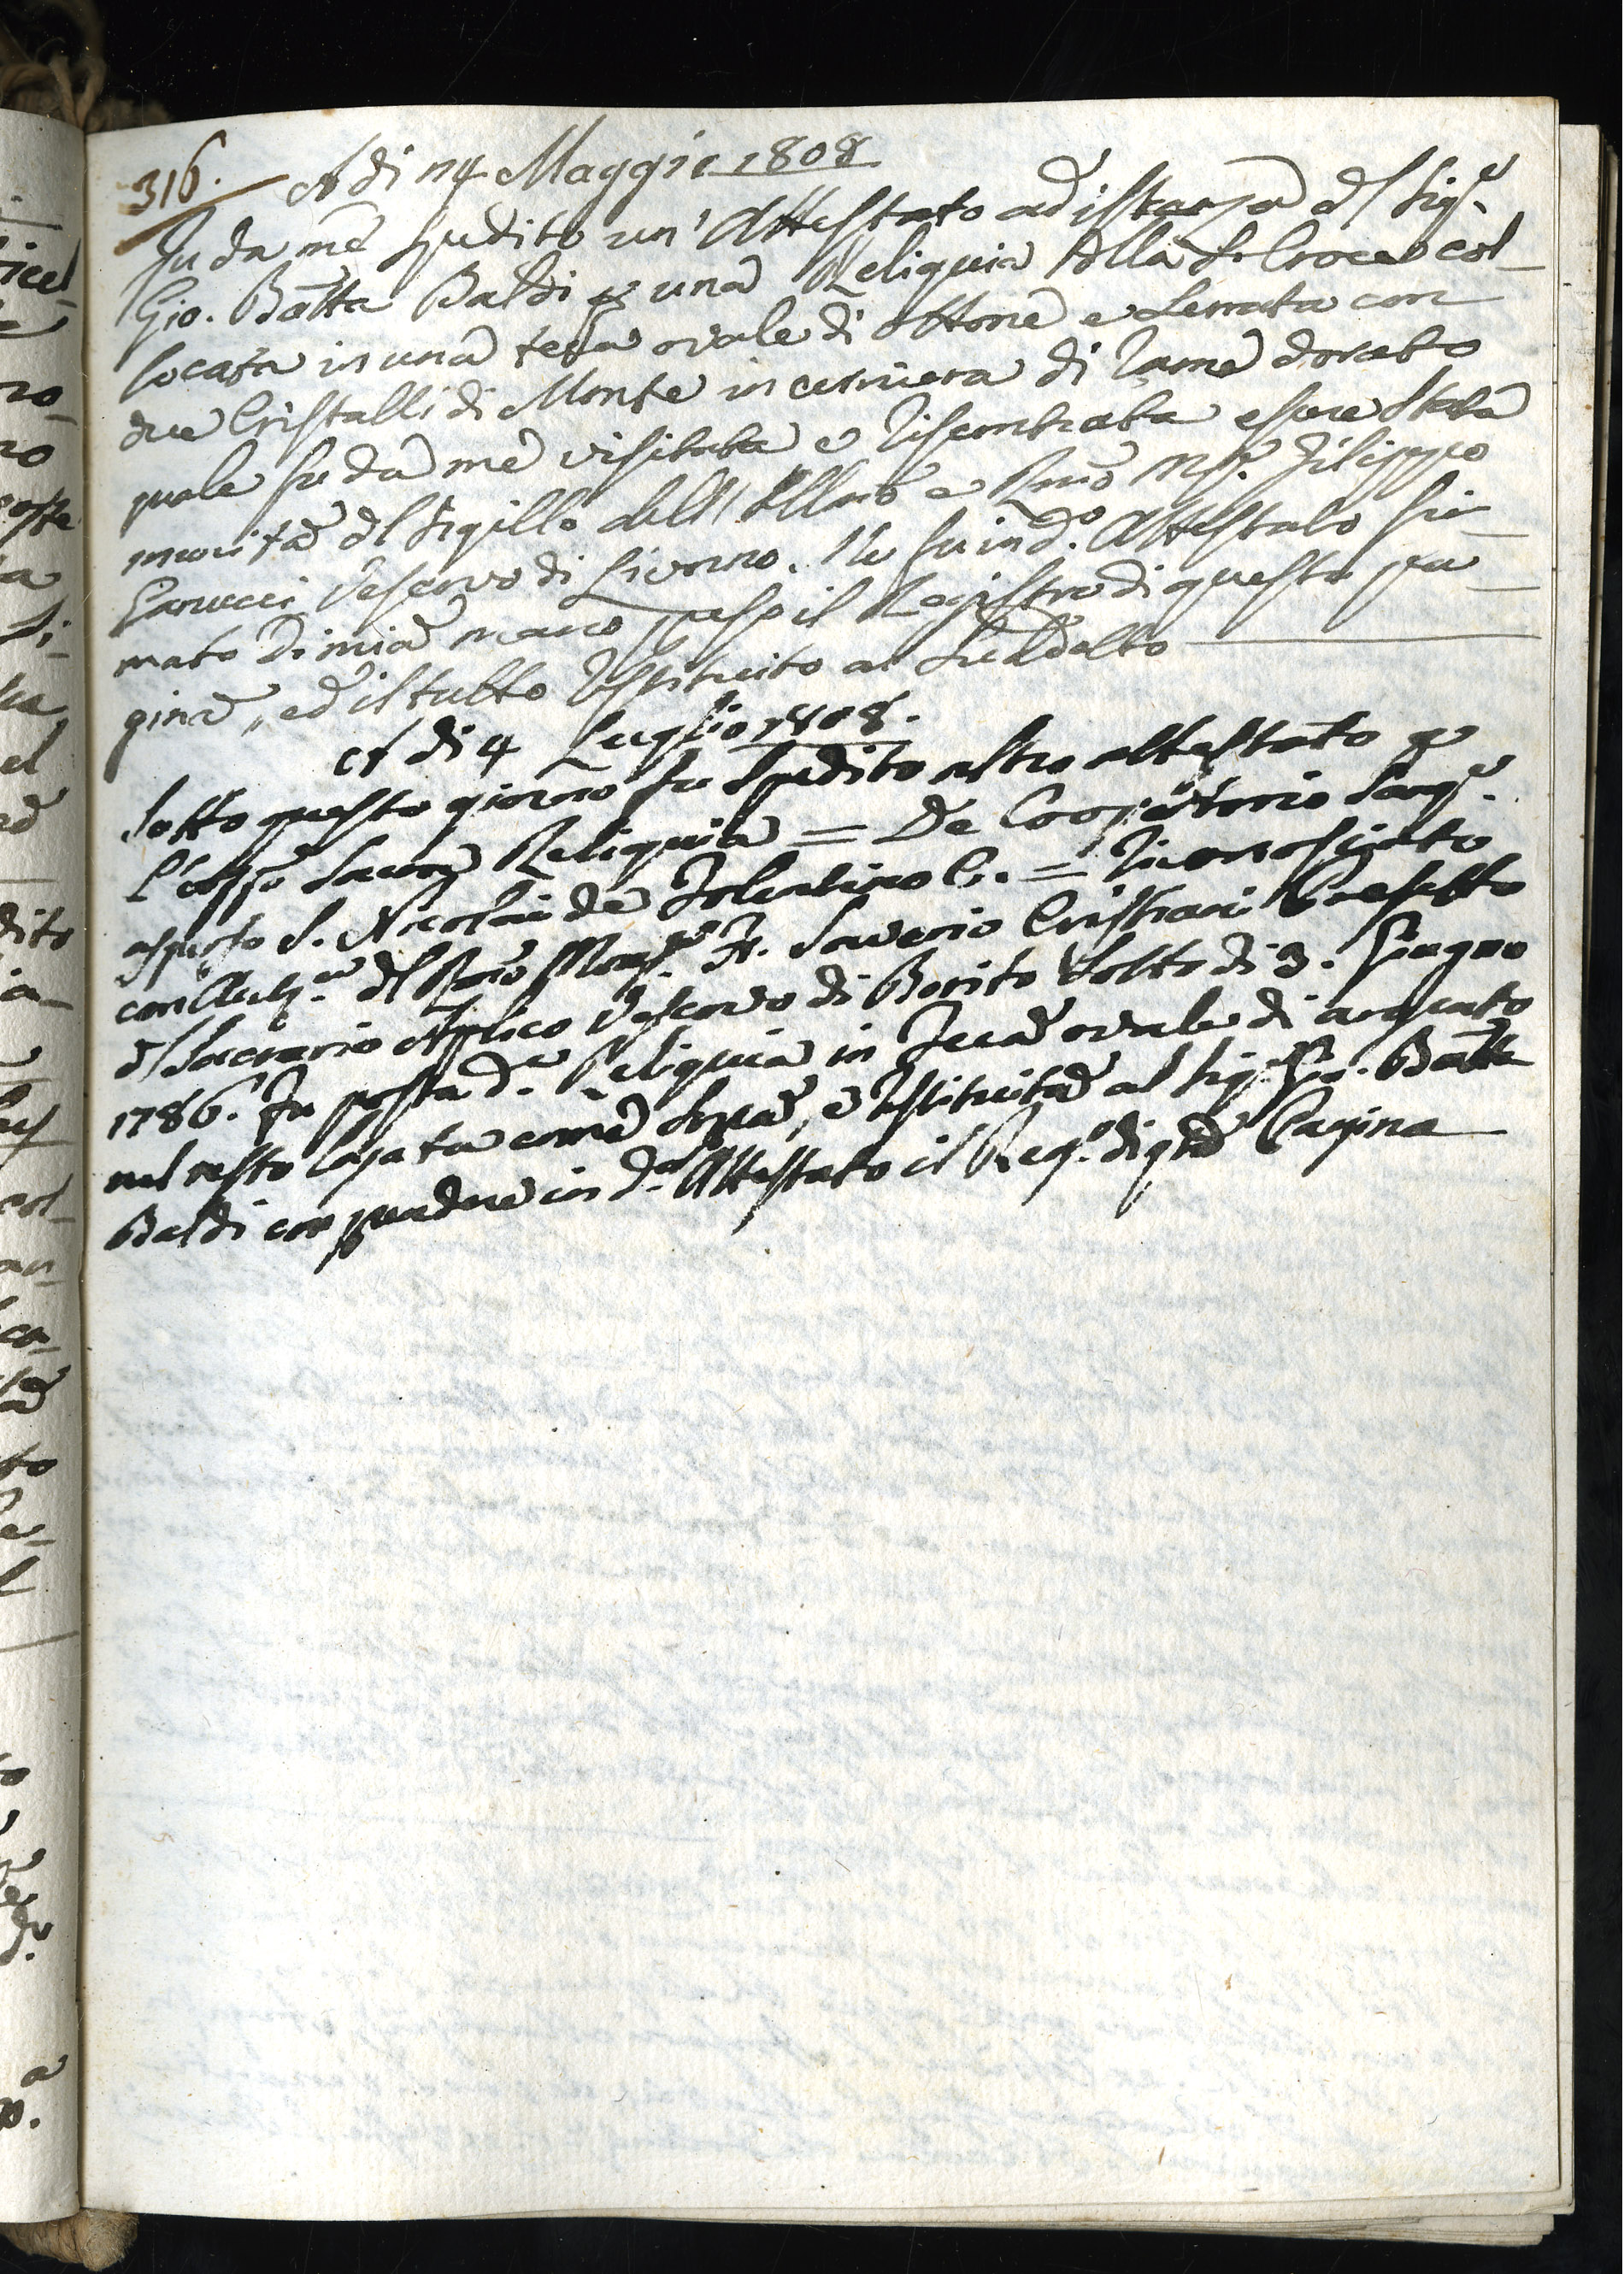 316. A di 14 Maggio 1808
Fu da me spedito un' Attestato ad istanza del Sig.e
Gio. Batta Baldi p una Reliquia della S. Croce col-
locata in una teca ovale di ottone e serrata con
due Cristalli di Monte in cerniera di rame dorato
quale fu da me visitata e riscontrata essere stata
munita del sigillo dell' Illmo e Rmo Msr. Filippo
Ganucci Vescovo di Livorno. Ne fu ind.o Attestato fir-
mato di mia mano, preso il Registro di questa pa-
gina, ed il tutto restituito al Suddetto
A di 4 Luglio 1808.
Sotto questo giorno fu spedito altro attestato p
l'espo. Sacra Reliquia = De Coopertorio Sang.e
asperso S. Nicolai de Tolentino C. = riconosciuto
con Aut.a del Rmo Mons.r Fr. Saverio Cristiani Prefetto
del Sacrario Aplico Vescovo di Porfito sotto di 3. Giugno
1786. Fu posta d.a Reliquia in Teca ovale di argento
nel resto legata come sopra, e restituita al Sig. Gio. Batta
Baldi con prendere in d.o Attestato il Reg.o di qta Pagina